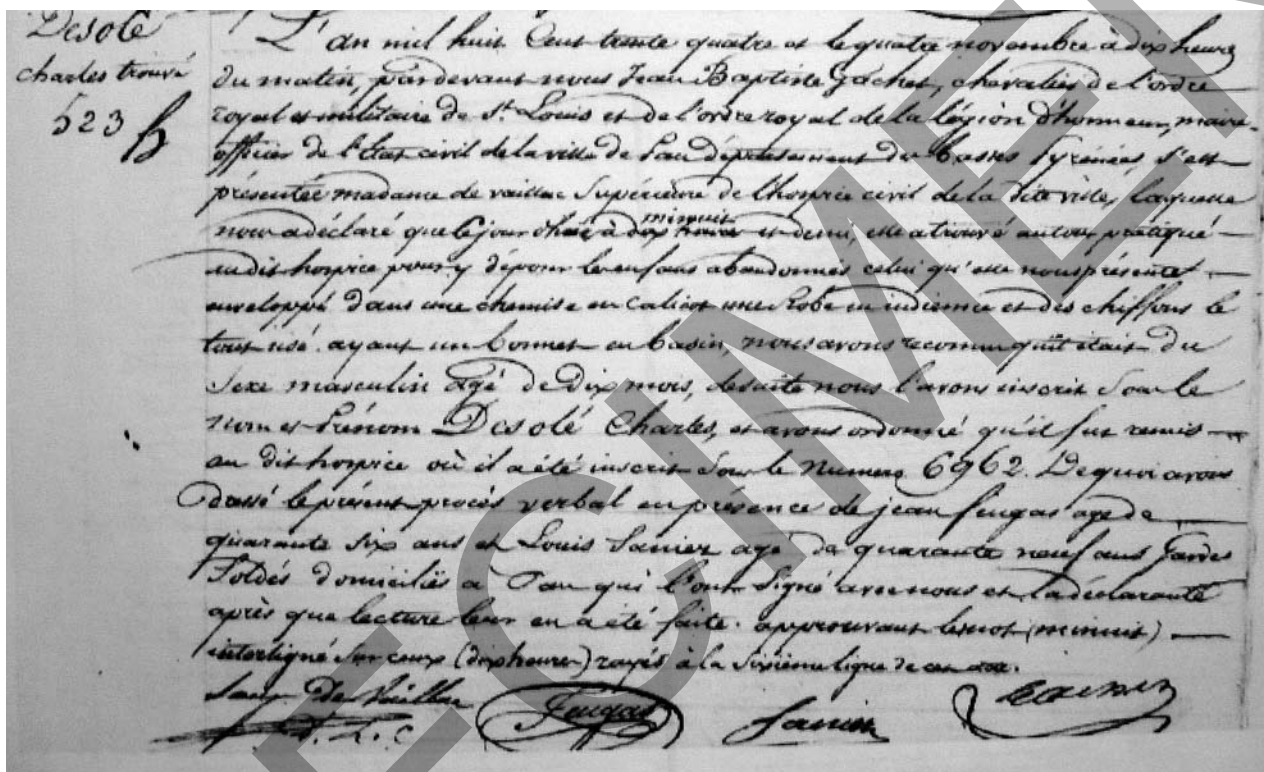 Désolé
charles trouvé
523
L'an mil huit Cent trente quatre et le quatre novembre à dix heures
du matin, pardevant nous Jean Baptiste Gachet, chevalier de l'ordre
royal et militaire de St. Louis et de l'ordre royal de la légion d'honneur, maire
officier de l'état civil de la ville de Pau département des Basses Pyrénées s'est
présentée madame de vaillac Supérieure de l'hospice civil de la dite ville, laquelle
nous a déclaré que le jour d'hier à dix heures minuit et demi, elle a trouvé au tour pratiqué
au dit hospice pour y déposer les enfans abandonnés celui qu'elle nous présente
enveloppé dans une chemise en calicot une Robe en indienne et des chiffons le
tout usé. ayant un bonnet en basin, nous avons reconnu qu'il était du
Sexe masculin âgé de dix mois, desuite nous l'avons inscrit Sous le
nom et Prénom Désolé Charles, et avons ordonné qu'il fut remis
au dit hospice où il a été inscrit Sous le numero 6962. De quoi avons
dressé le présent procès verbal en présence de jean feugas age de
quarante six ans et Louis Sanier agé de quarante neuf ans Gardes
Soldés domiciliés a Pau qui l'ont Signé avec nous et la déclarante
après que lecture leur en a été faite. approuvant le mot (minuit)
interligné sur ceux (dix heures) rayés à la Sixième ligne de cet acte.
Sœur De Vaillac Feugas Sanier
SPECIMEN